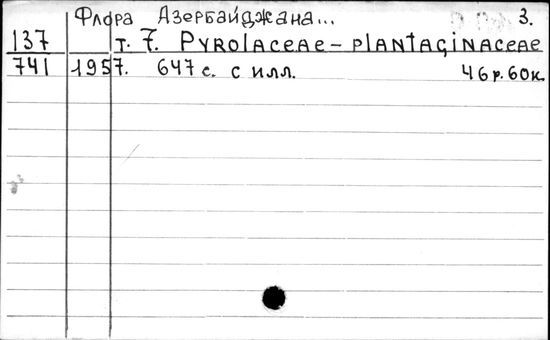 Флора Азербайджана... 3.
137 т. 7. Pyrolaceae – plantaginaceae
741 1957. 647 с. с илл. 46р. 60к.